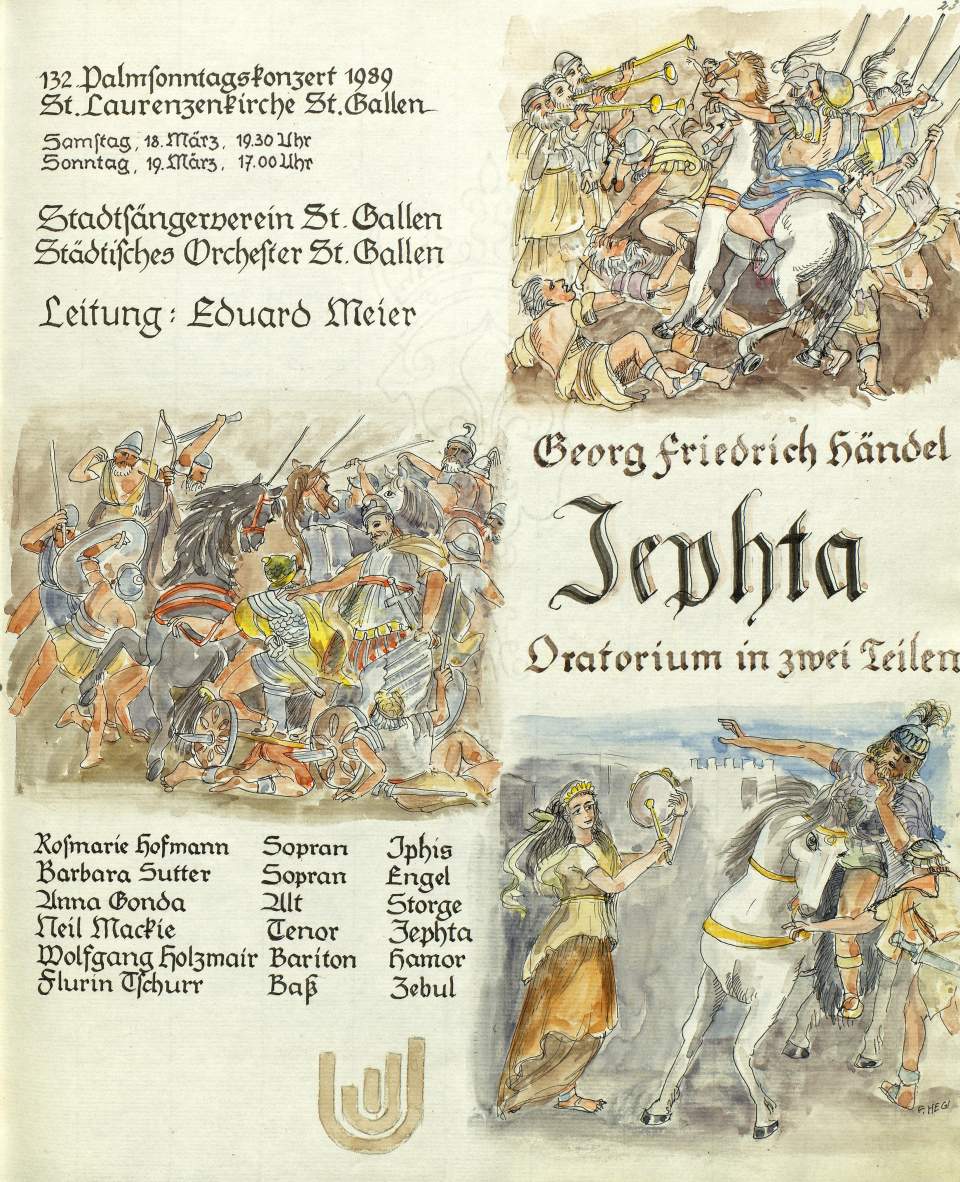 23
132. Palmsonntagskonzert 1989
St. Laurenzenkirche St. Gallen
Samstag, 18. März, 19.30 Uhr
Sonntag, 19. März, 17.00 Uhr
Stadtsängerverein St. Gallen
Städtisches Orchester St. Gallen
Leitung: Eduard Meier
Georg Friedrich Händel
Jephta
Oratorium in zwei Teilen
Rosmarie Hofmann Sopran Iphis
Barbara Sutter Sopran Engel
Anna Gonda Alt Storge
Neil Mackie Tenor Jephta
Wolfgang Holzmair Bariton Hamor
Flurin Tschurr Baß Zebul
P. HEGI